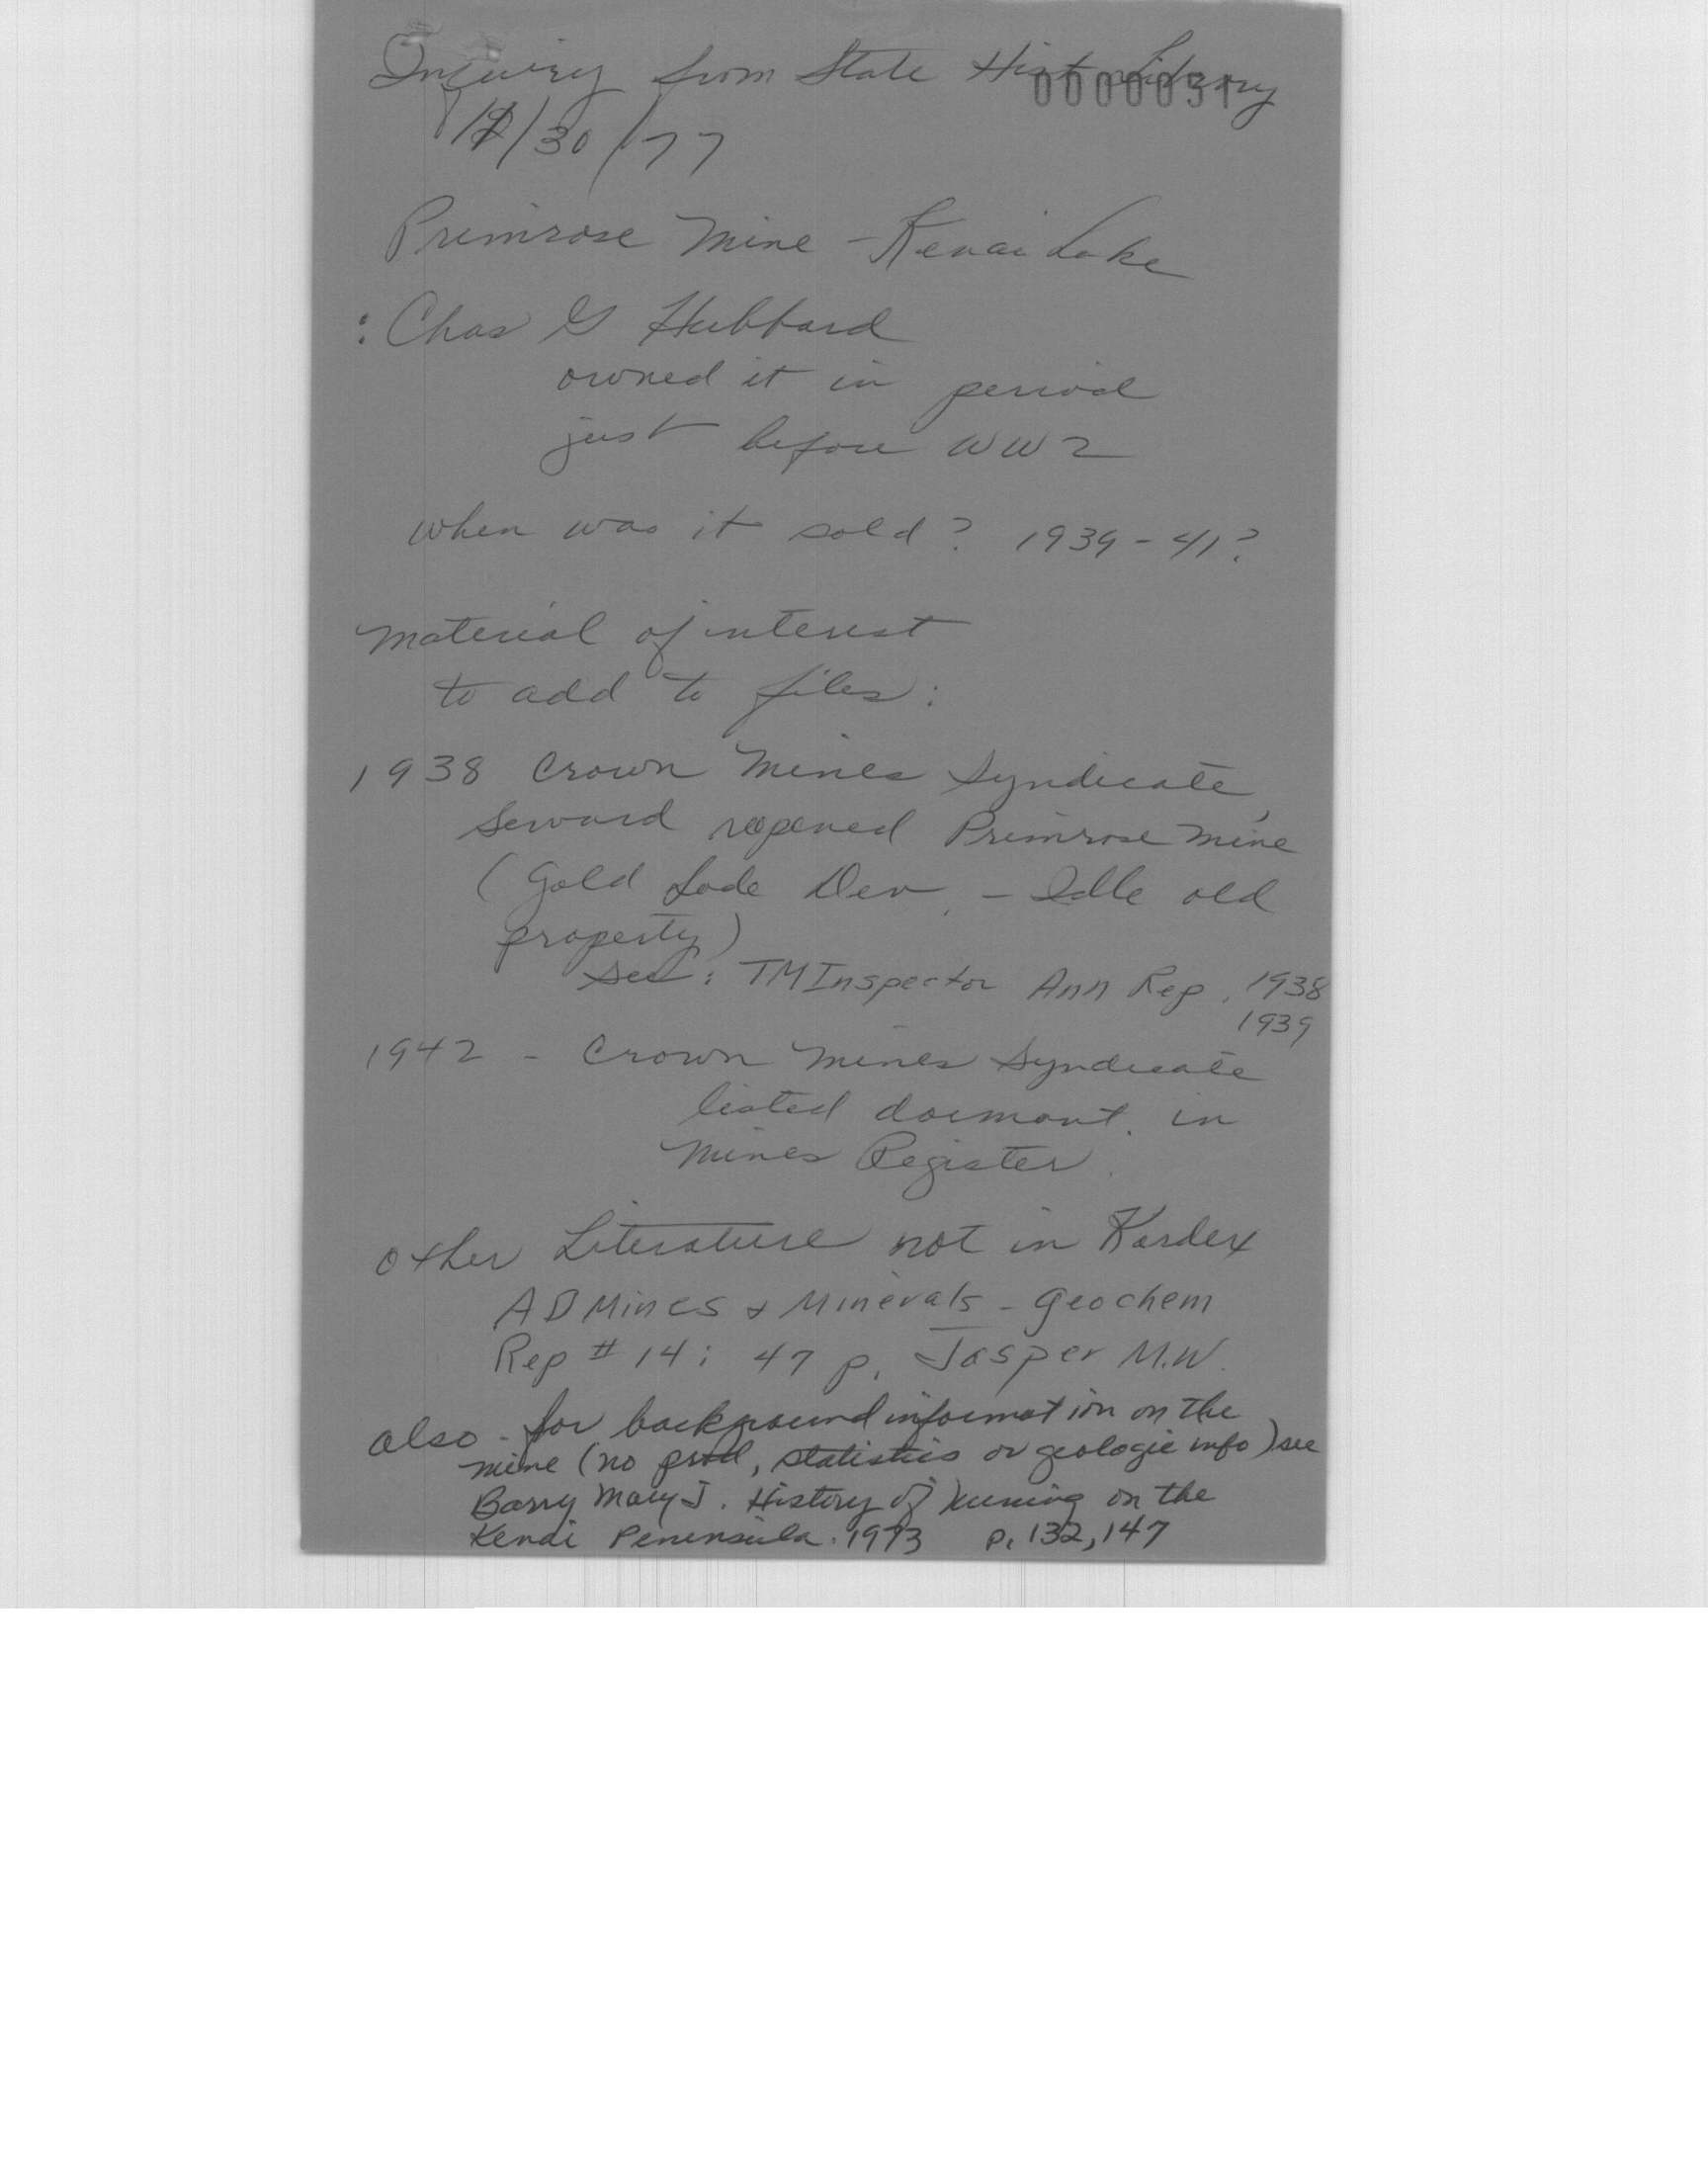 Inquiry from State Hist. Library
0000031
/30/77
Primrose Mine - Kenai Lake
: Chas G Hubbard
owned it in period
just before WW2
when was it sold? 1939-41?
Material of interest
to add to files:
1938 Crown Mines Syndicate,
Seward reopened Primrose Mine
(Gold Lode Dev. - Idle old
property)
see: TM Inspector Ann Rep. 1938
1939
1942 - Crown Mines Syndicate
listed dormant. in
Mines Register.
Other Literature not in Kardex
AD Mines & Minerals - Geochem
Rep # 14; 47 p. Jasper M.W.
also - for background information on the
mine (no prod, statistics or geologic info) see
Barry, Mary J. History of Mining on the
Kenai Peninsula. 1973 p. 132, 147